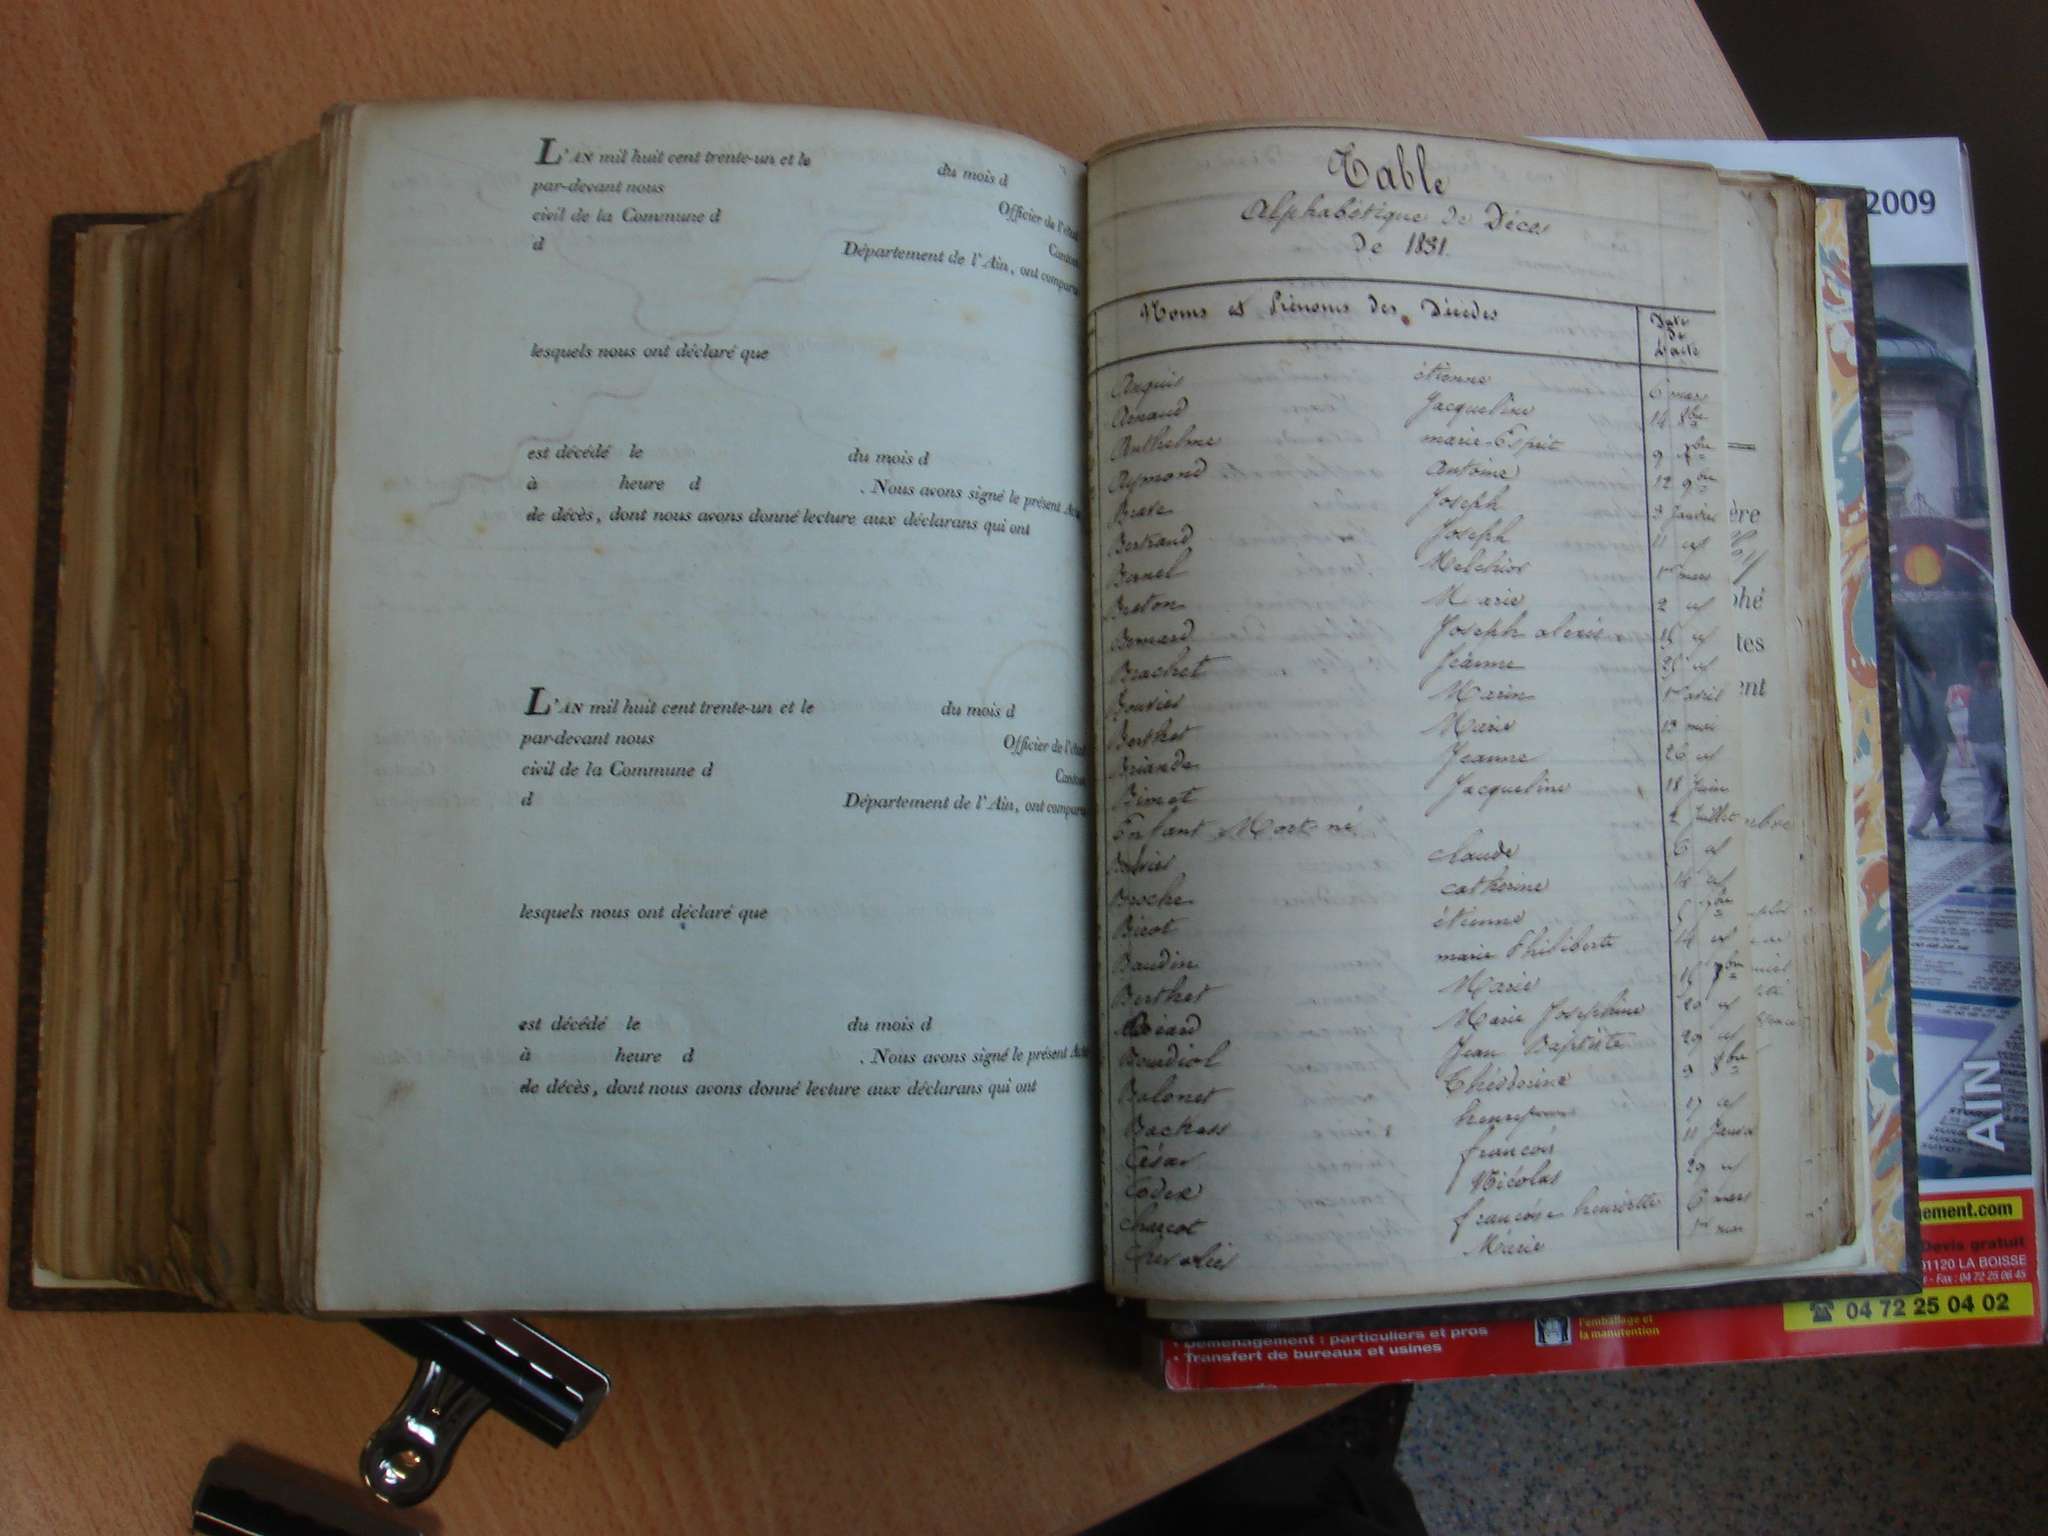 L'AN mil huit cent trente-un et le du mois d
par-devant nous Officier de l'état
civil de la Commune d Canton
d Département de l'Ain, ont comparu
lesquels nous ont déclaré que
est décédé le du mois d
à heure d . Nous avons signé le présent Acte
de décès, dont nous avons donné lecture aux déclarans qui ont
L'AN mil huit cent trente-un et le du mois d
par-devant nous Officier de l'état
civil de la Commune d Canton
d Département de l'Ain, ont comparu
lesquels nous ont déclaré que
est décédé le du mois d
à heure d . Nous avons signé le présent Acte
de décès, dont nous avons donné lecture aux déclarans qui ont
Table
Alphabétique de Décès
De 1831.
Noms et Prénoms des Décédés Date de l'acte
étienne 6 mars
Arnaud Jacqueline 14 8bre
Anthelme marie-Esprit 9
Aymond Antoine 12 9bre
Joseph 3 Janvier
Bertrand Joseph 11 id
Melchior 1er mars
Breton Marie 2 id
Bernard Joseph alexis 15 id
Brachet Jeanne 25 id
Bouvier Marin 1er avril
Berthet Marie 13 mai
Briande Jeanne 26 id
Binet Jacqueline 18 Juin
Enfant Mort-né 2 Juillet
claude 6 id
Broche catherine 14 id
Bicot étienne
Baudin marie Philiberte 14 id
Berthet Marie 15 7bre
Marie Josephine 20 id
Bourdiol Jean Baptiste 29 id
Balonet Théodorine 9 8bre
17 id
César françois 11 Janvier
Coder Nicolas 29 id
Charcot françoise henriette 6 mars
Chevalier Marie 1er
2009
ère
phé
tes
ent
AIN
gement.com
Devis gratuit
01120 LA BOISSE
- Fax : 04 72 25 06 45
☎ 04 72 25 04 02
• Déménagement : particuliers et pros
• Transfert de bureaux et usines
l'emballage et
la manutention